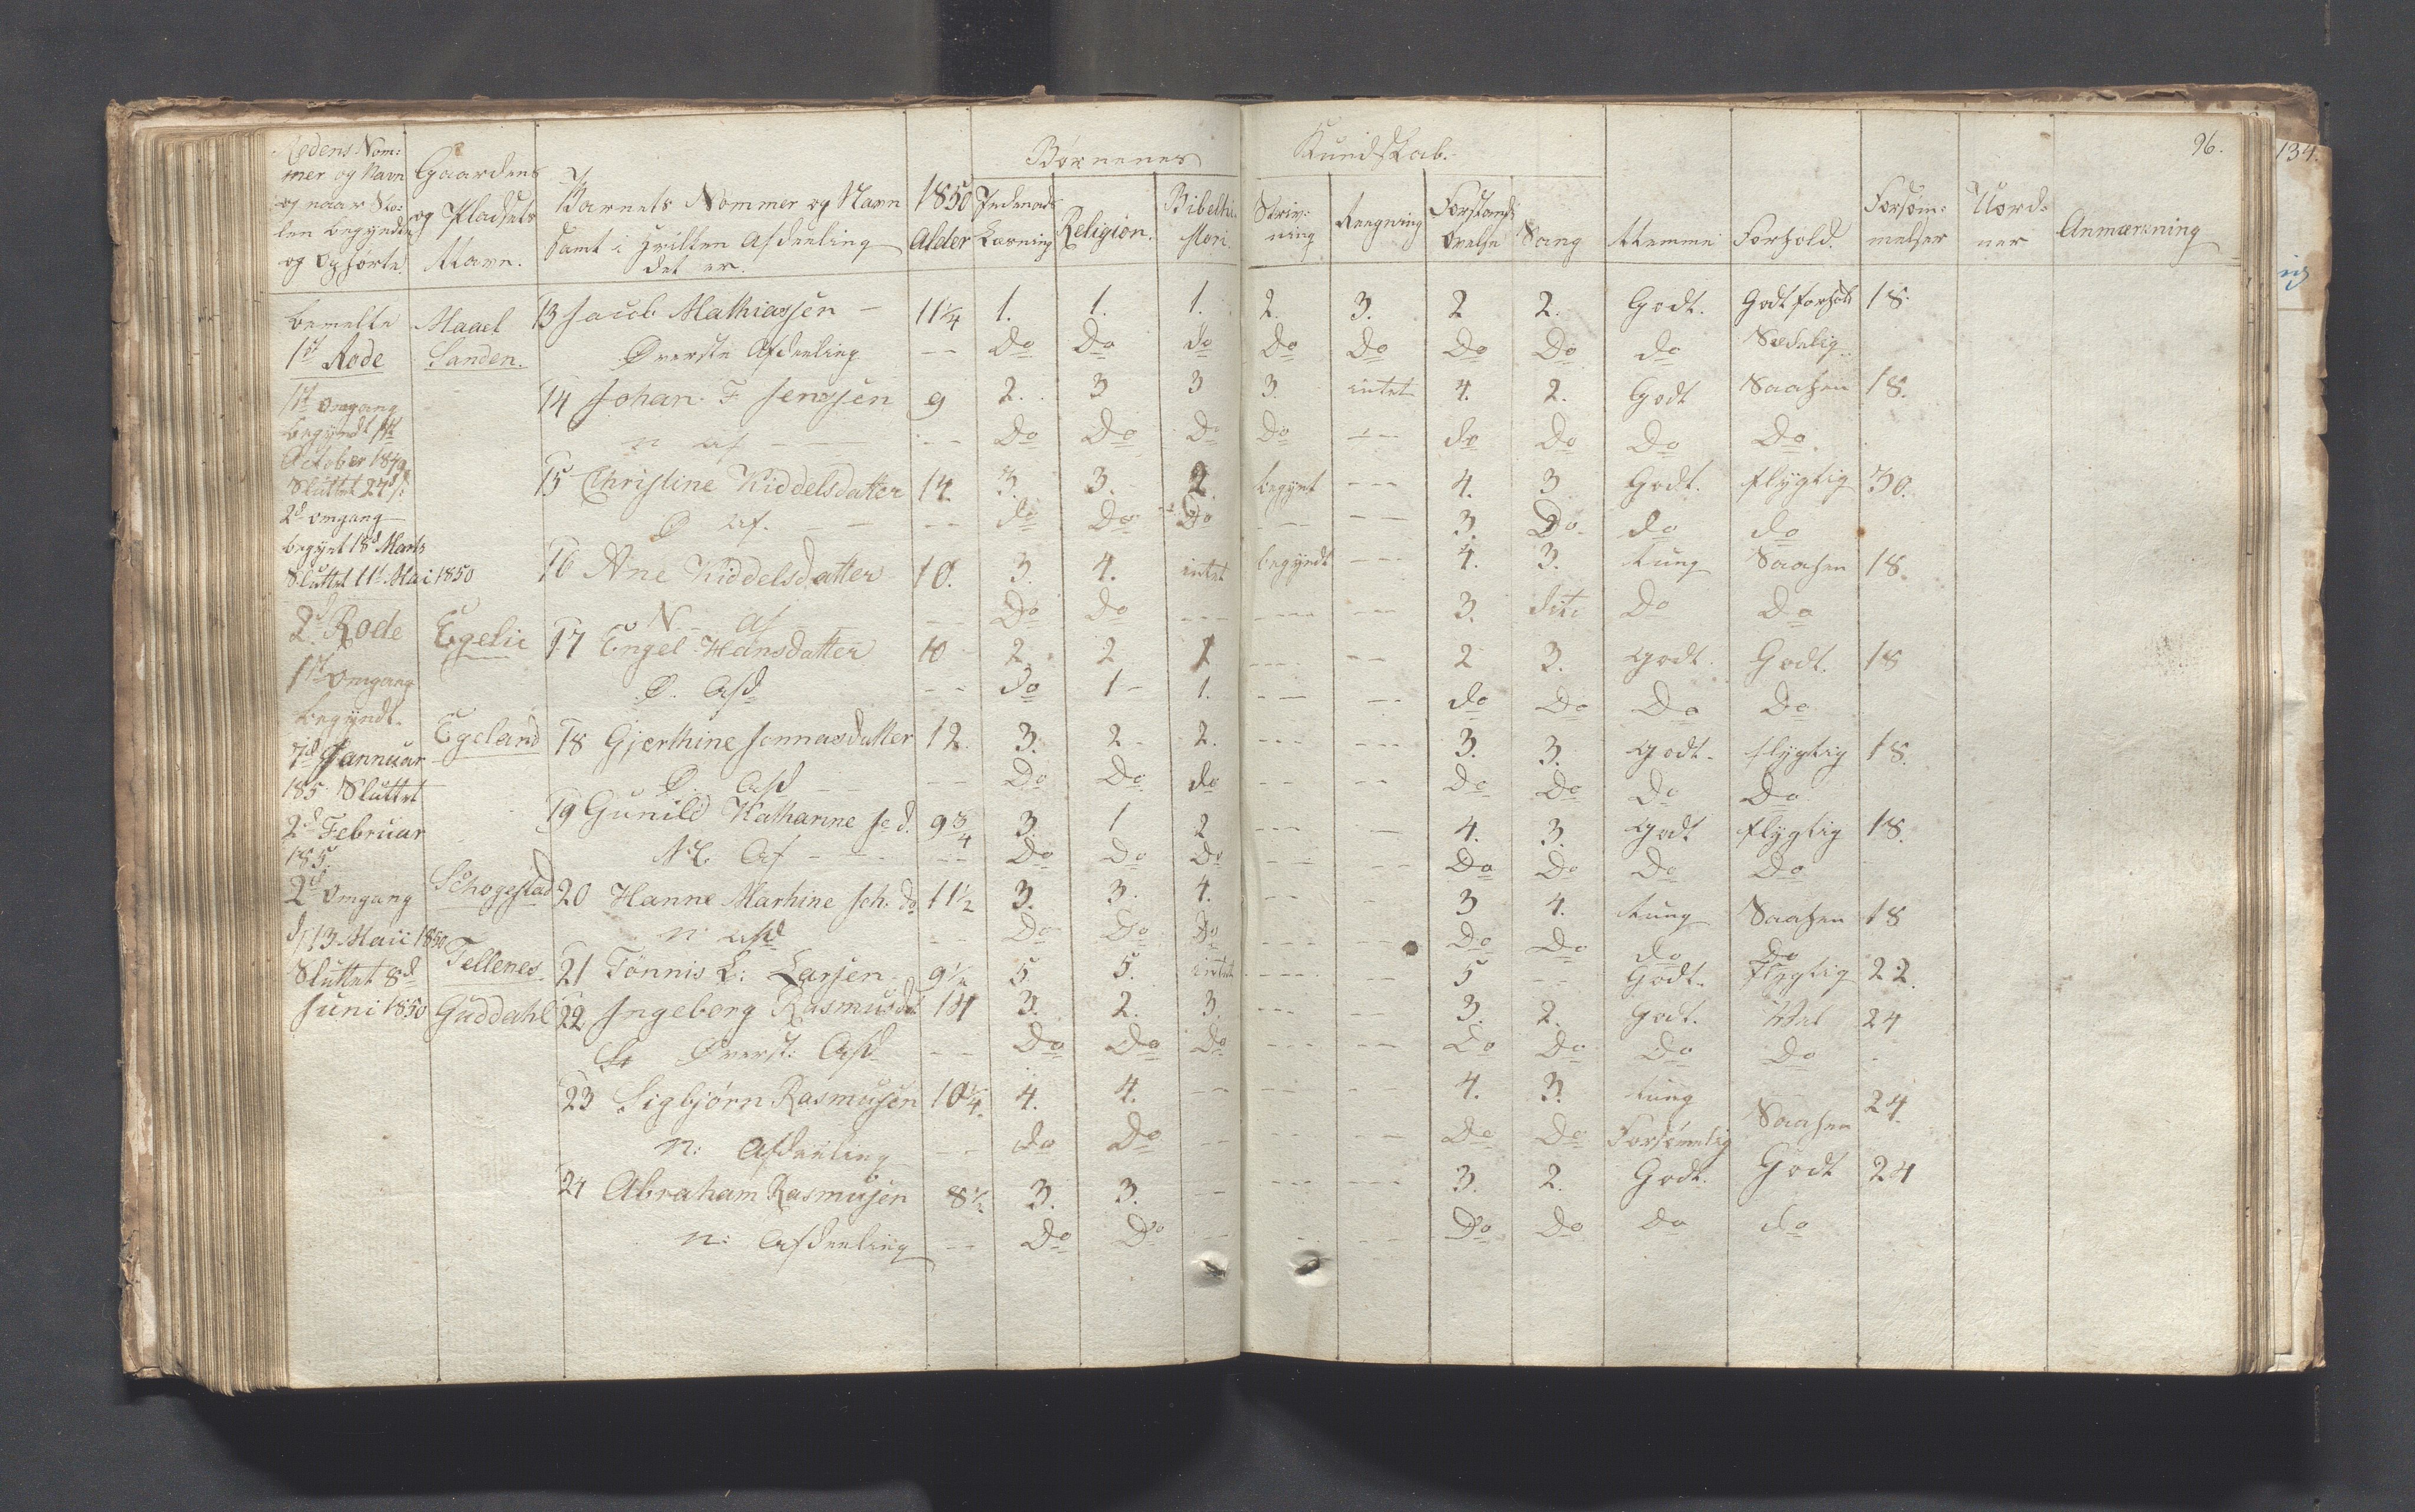 96.
134.
Rodens Nom:
mer og Navn
og naar Sko:
len begyndte
og Ophørte.
Gaardens
og Pladsets
Navn.
Barnets Nommer og Navn
samt i hvilken Afdeeling
det er.
1850
Alder
Børnenes Kundskab.
Indenads Læsning
Religion.
Bibelhi-
stori.
Skriv:
ning
Reegning
Forstands
Øvelse
Sang
Nemme
Forhold.
Forsøm:
melser
Uord:
ner
Anmærkning
bemelte Maael 13 Jacob Mathiassen — 11 1/4 1. 1. 1. 2. 3. 2 2. Godt. Godt forhold 18.
1st Rode Sanden. Øverste Afdeeling -- Do Do do Do Do Do Do do Sædelig.
1st Omgang 14 Johan F Jenssen 9 2. 3 3 3. intet 4. 2. Godt Saahen 18.
begyndt 1st n af -- -- Do Do Do Do -- do Do Do Do
October 1849
Sluttet 27d 15 Christine Kiddelsdatter 14. 3. 3. 2. begynt --- 4. 3 Godt. flygtig 30.
2d omgang Ø Af. -- -- do Do Do --- -- 3. Do do do
begynt 18d Marts 16 Ane Kiddelsdatter 10. 3. 4. intet begyndt --- 4. 3. tung Saahen 18.
Sluttet 11t Mai 1850
N af -- Do do --- --- --- 3. dito Do Do
2d Rode Egelie 17 Engel Hansdatter 10 2. 2 2 --- -- 2 3. Godt. Godt. 18
1st Omgang Ø. Afd -- do 1 - 1. --- -- do Do Do Do
begyndt. Egeland 18 Gjerthine Jonnasdatter 12. 3. 2 - 2. --- --- 3. 3. Godt. flygtig 18.
7d Jannuar Ø. Afd -- Do Do do -- -- do Do Do Do
185 Sluttet 19 Gunild Katharine Jo d. 9 3/4 3. 1 2 --- -- 4. 3. Godt flygtig 18.
2d Februar N. Af -- -- Do Do Do -- -- Do Do Do Do
185.
2d Omgang Schogestad 20 Hanne Marhine Joh. do 11 1/2 3. 3. 4. -- -- 3 4. tung Saahen 18
d/13 Maii 1850 n: afd -- Do Do Do --- -- Do Do do Do
Sluttet 8d Tellenes 21 Tönnis L: Larsen 9 1/2 5 5. intet --- -- 5 -- Godt. Flygtig 22.
Juni 1850 Guddahl 22 Ingeborg Rasmusdat 14 3. 2. 3. --- -- 3. 2. Godt. Vel 24
Øverst: Afd -- Do Do Do --- -- Do Do Do Do
23 Sigbjørn Rasmusen 10 1/4. 4. 4. -- -- -- 4. 3. tung Saahen 24.
n: Afdeeling -- do Do -- -- -- Do Do Forsømmelig
24 Abraham Rasmusen 8 1/2 3. 3. -- --- --- 3. 2. Godt. Godt 24
n: Afdeeling -- Do Do -- -- -- Do Do do do